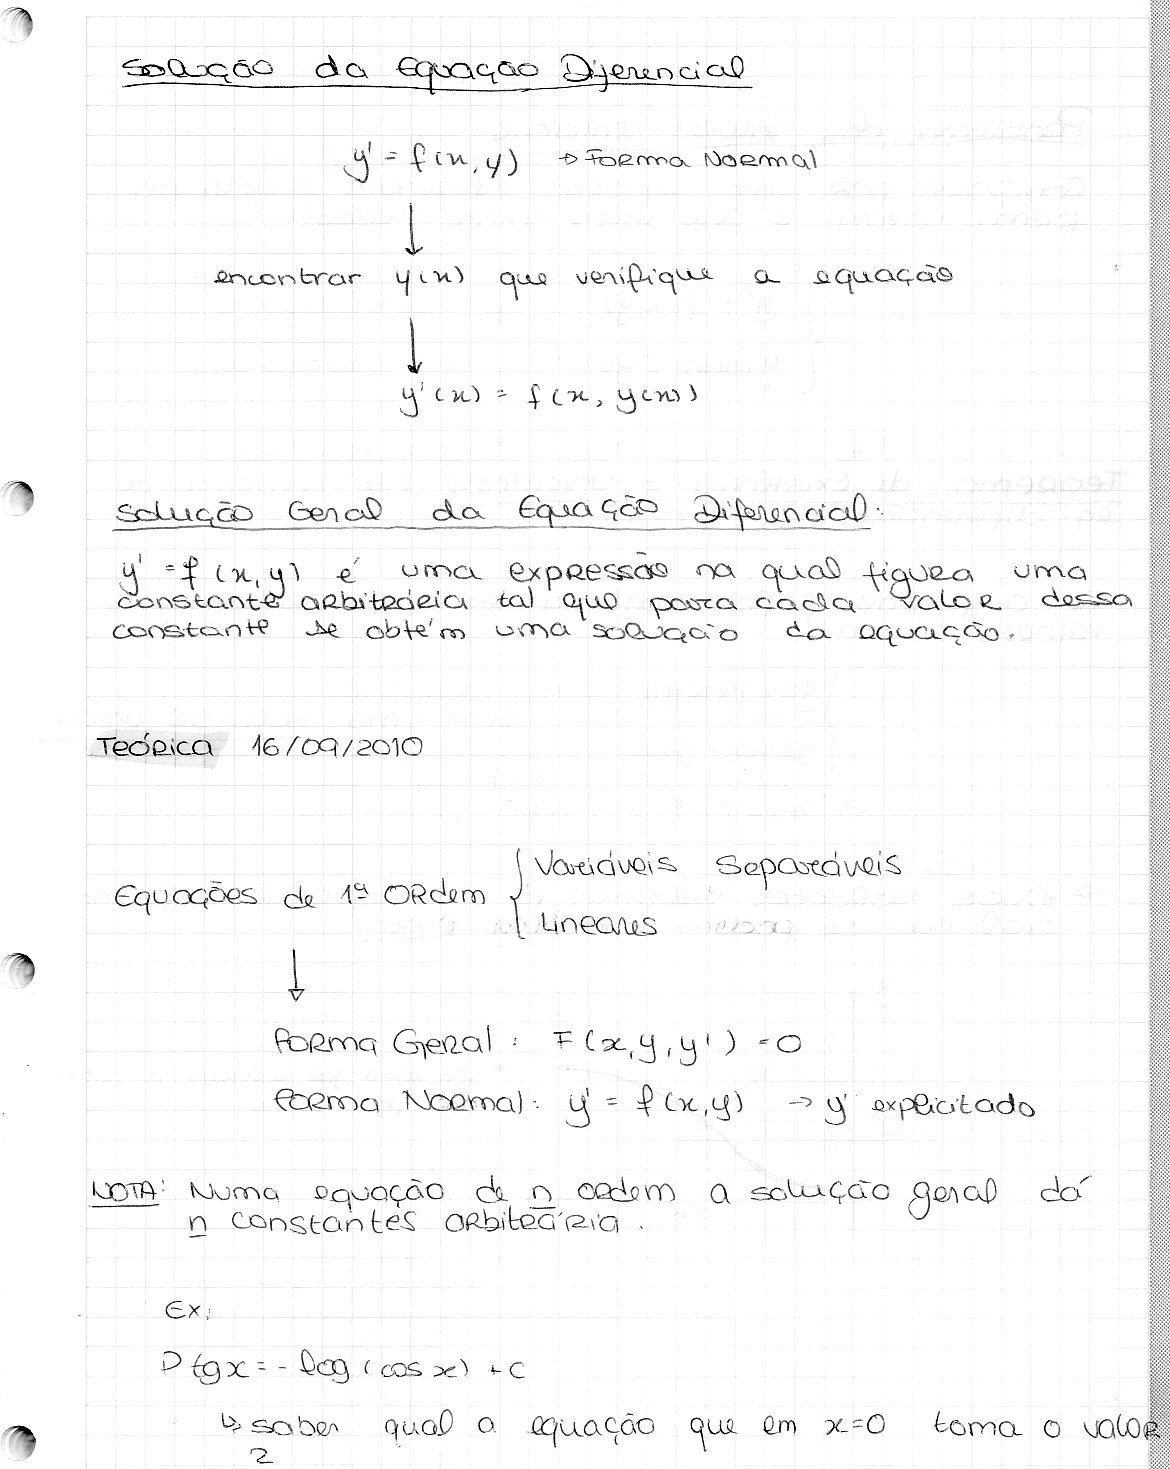 Solução da Equação Diferencial
y' = f(x,y) → Forma Normal
encontrar y(x) que verifique a equação
y'(x) = f(x, y(x))
Solução Geral da Equação Diferencial:
y' = f(x,y) é uma expressão na qual figura uma
constante arbitrária tal que para cada valor dessa
constante se obtém uma solução da equação.
Teórica 16/09/2010
Equações de 1ª Ordem { Variáveis Separáveis
Lineares
Forma Geral: F(x,y,y') = 0
Forma Normal: y' = f(x,y) → y' explicitado
NOTA: Numa equação de n ordem a solução geral dá
n constantes arbitrária.
Ex:
P tgx = - log(cos x) + C
↳ saber qual a equação que em x=0 toma o valor
2